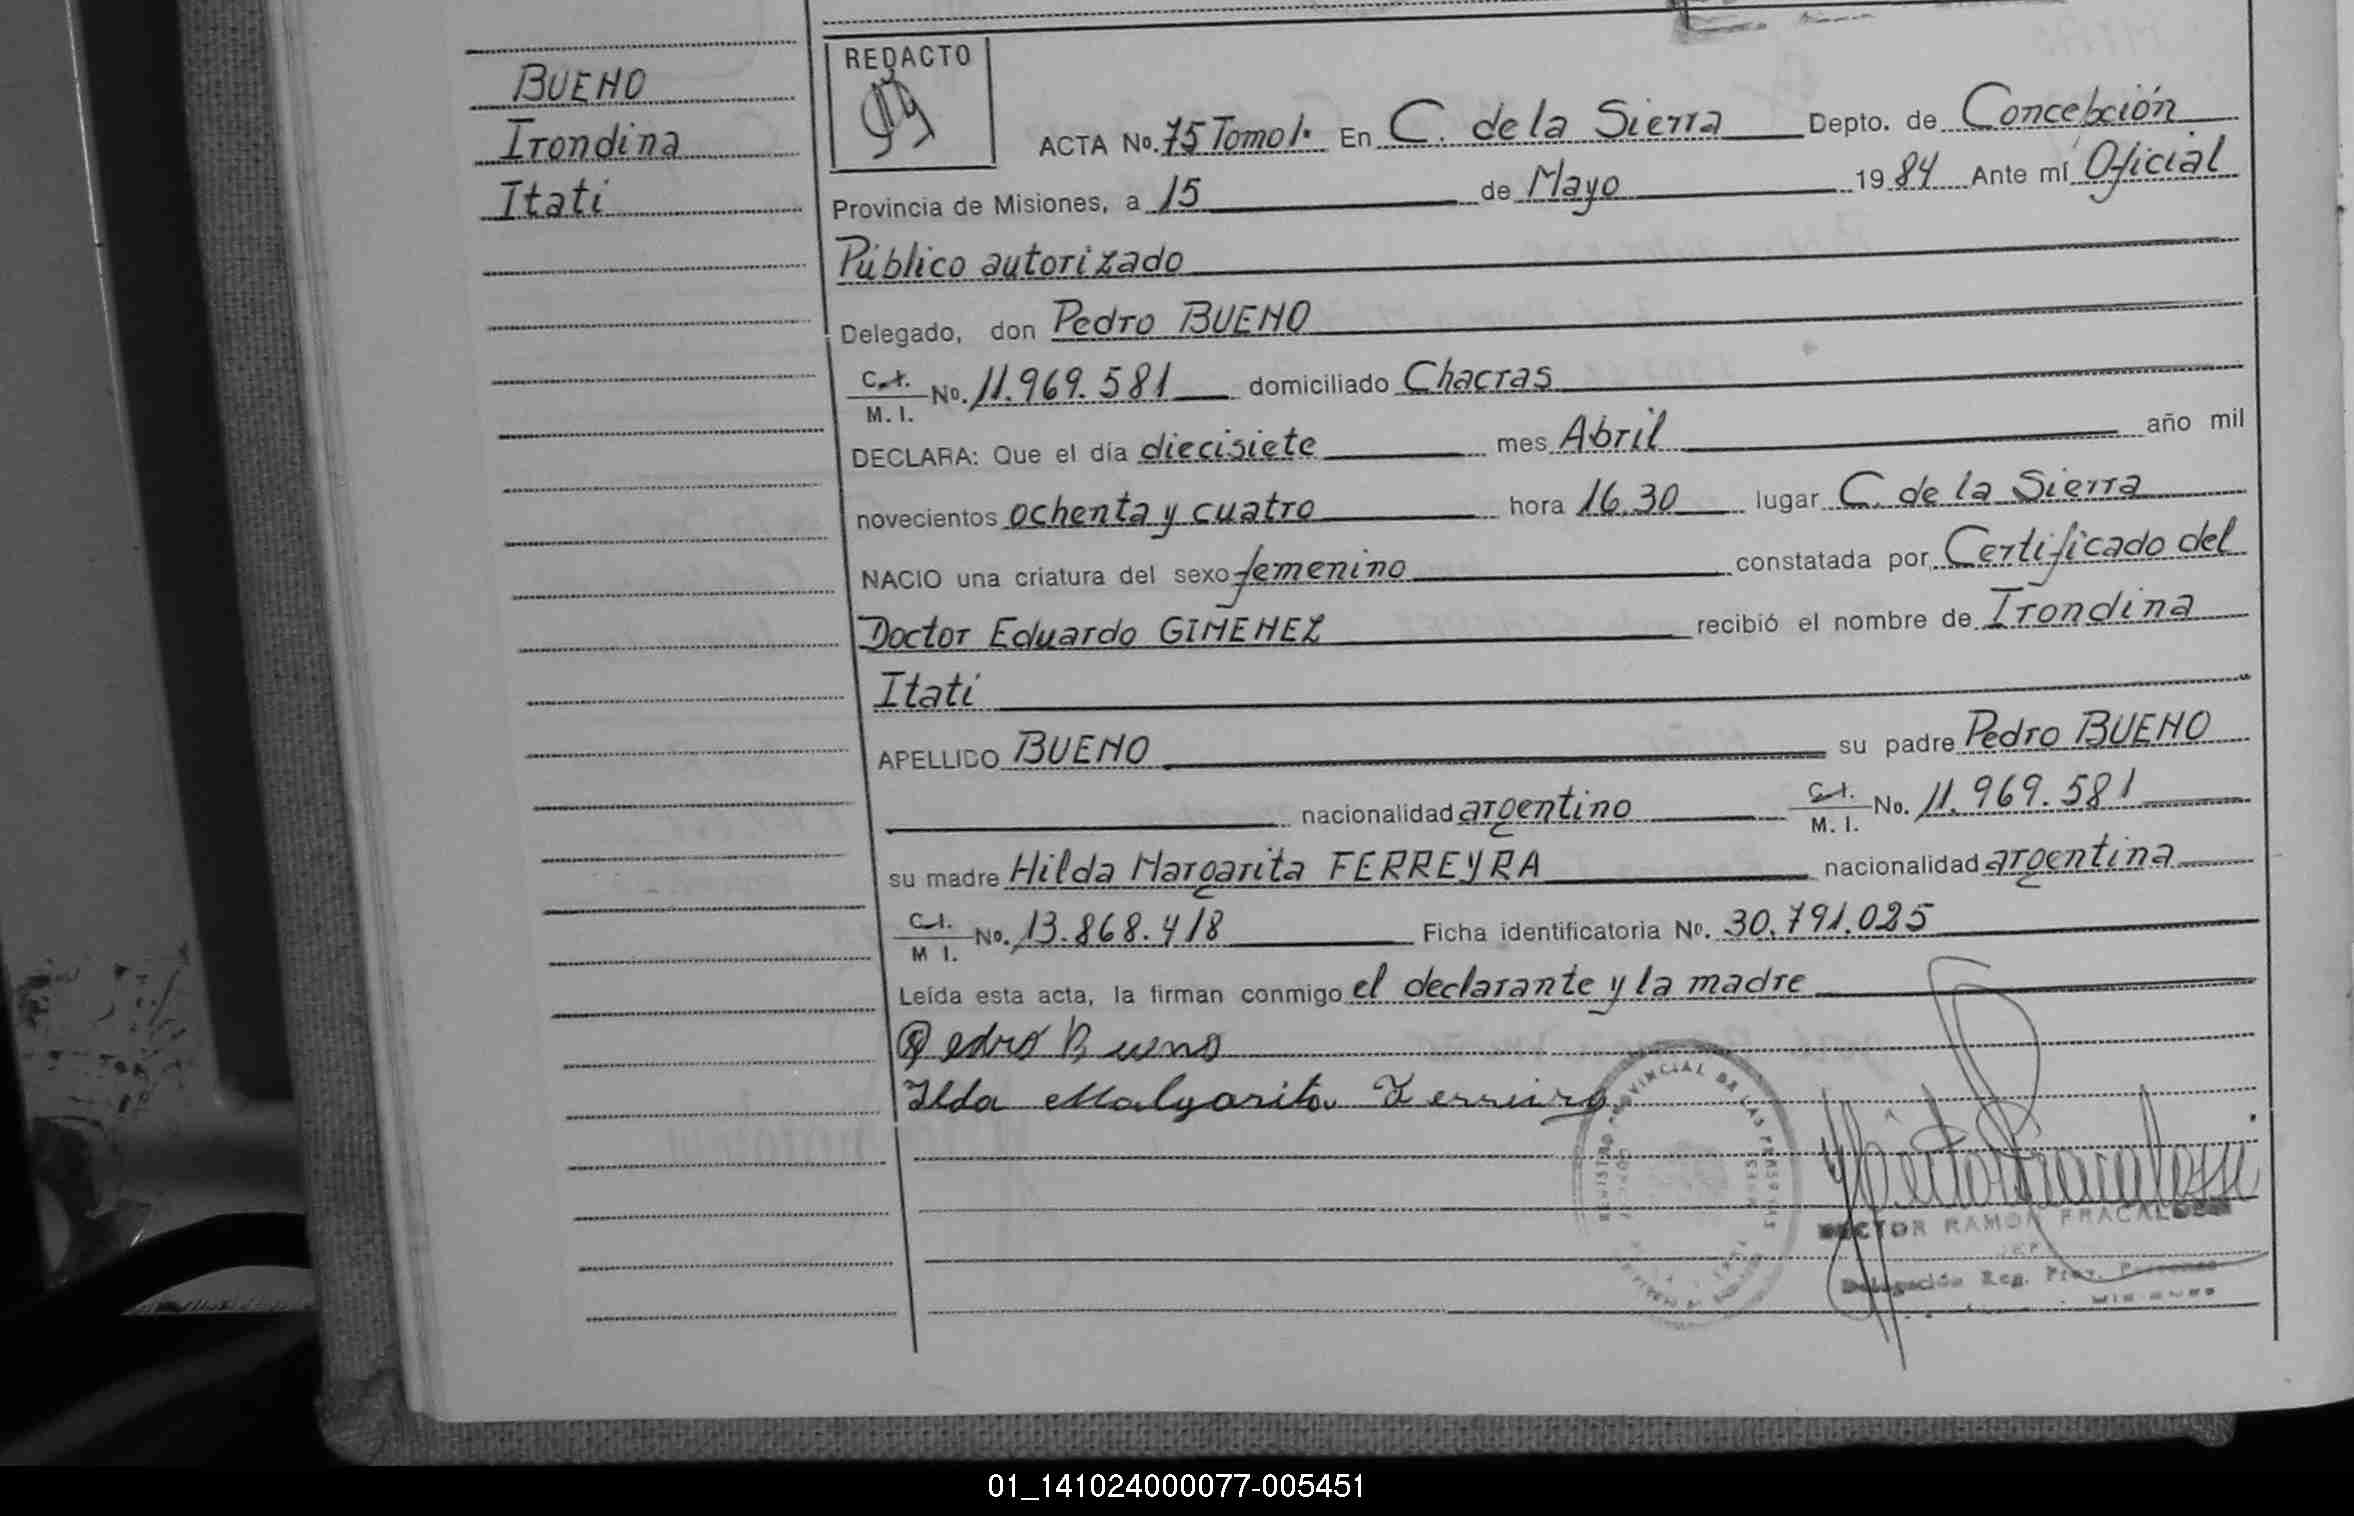 BUENO
Irondina
Itati
REDACTO
ACTA No. 75 Tomo 1· En C. de la Sierra Depto. de Concebción
Provincia de Misiones, a 15 de Mayo 1984 Ante mí Oficial
Público autorizado
Delegado, don Pedro BUENO
C.I. M. I. No. 11.969.581 domiciliado Chacras
DECLARA: Que el día diecisiete mes Abril año mil
novecientos ochenta y cuatro hora 16.30 lugar C. de la Sierra
NACIO una criatura del sexo femenino constatada por Certificado del
Doctor Eduardo GIMENEZ recibió el nombre de Irondina
Itati
APELLIDO BUENO su padre Pedro BUENO
nacionalidad argentino C.I. M. I. No. 11.969.581
su madre Hilda Margarita FERREYRA nacionalidad argentina
C.I. M I. No. 13.868.418 Ficha identificatoria No. 30.791.025
Leída esta acta, la firman conmigo el declarante y la madre
Pedro Bueno
Ilda Malgarita Ferreira
REGISTRO PROVINCIAL DE LAS PERSONAS
HECTOR RAMON FRACALOSSI
JEFE
Delegación Reg. Prov. Personas
MISIONES
01_141024000077-005451